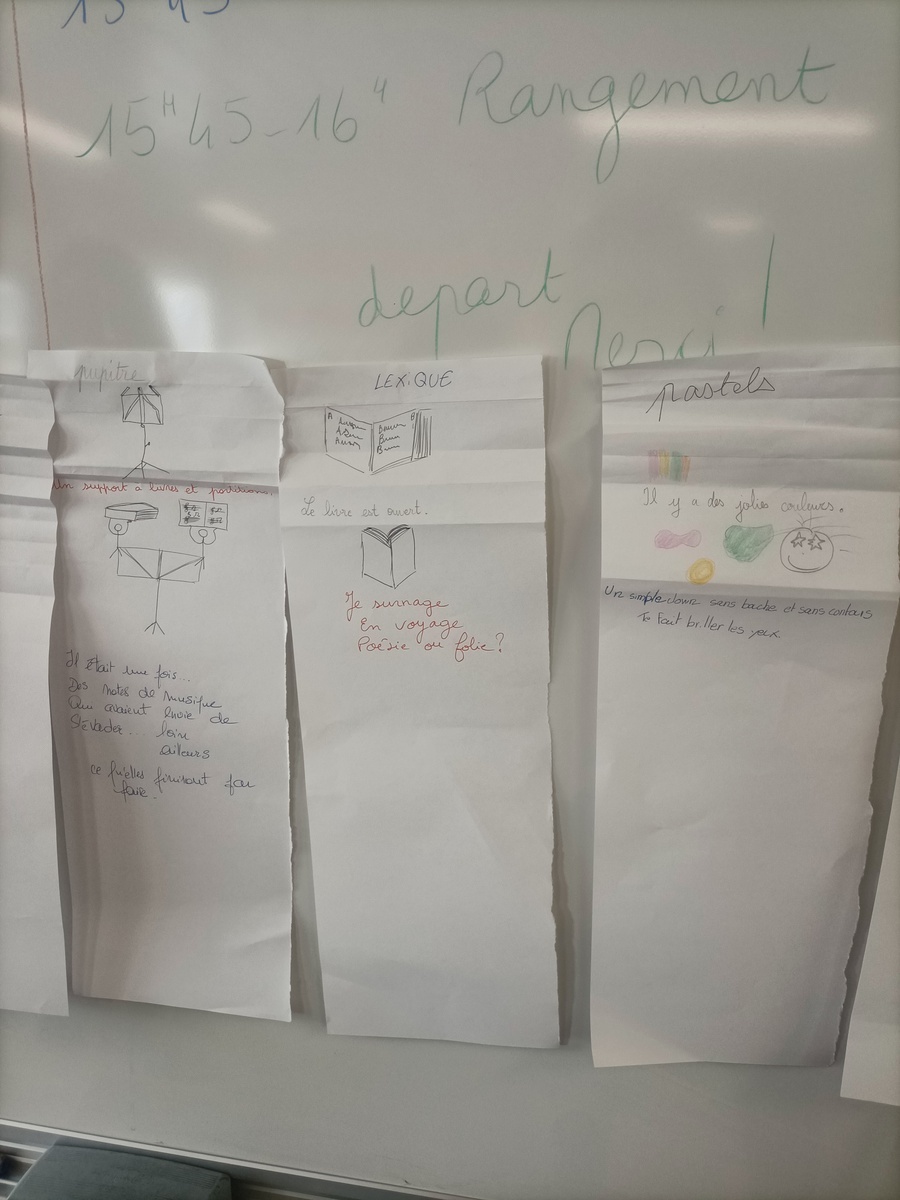 15 45
15H45-16H Rangement
depart
Merci !
pupitre
Un support à livres et partitions.
Il était une fois...
Des notes de musique
Qui avaient envie de
S'évader... loin
ailleurs
ce qu'elles finirent par
faire.
LEXIQUE
A
B
Le livre est ouvert.
Je surnage
En voyage
Poésie ou folie?
pastels
Il y a des jolies couleurs.
Un simple clown sans bache et sans contours
Te fait briller les yeux.